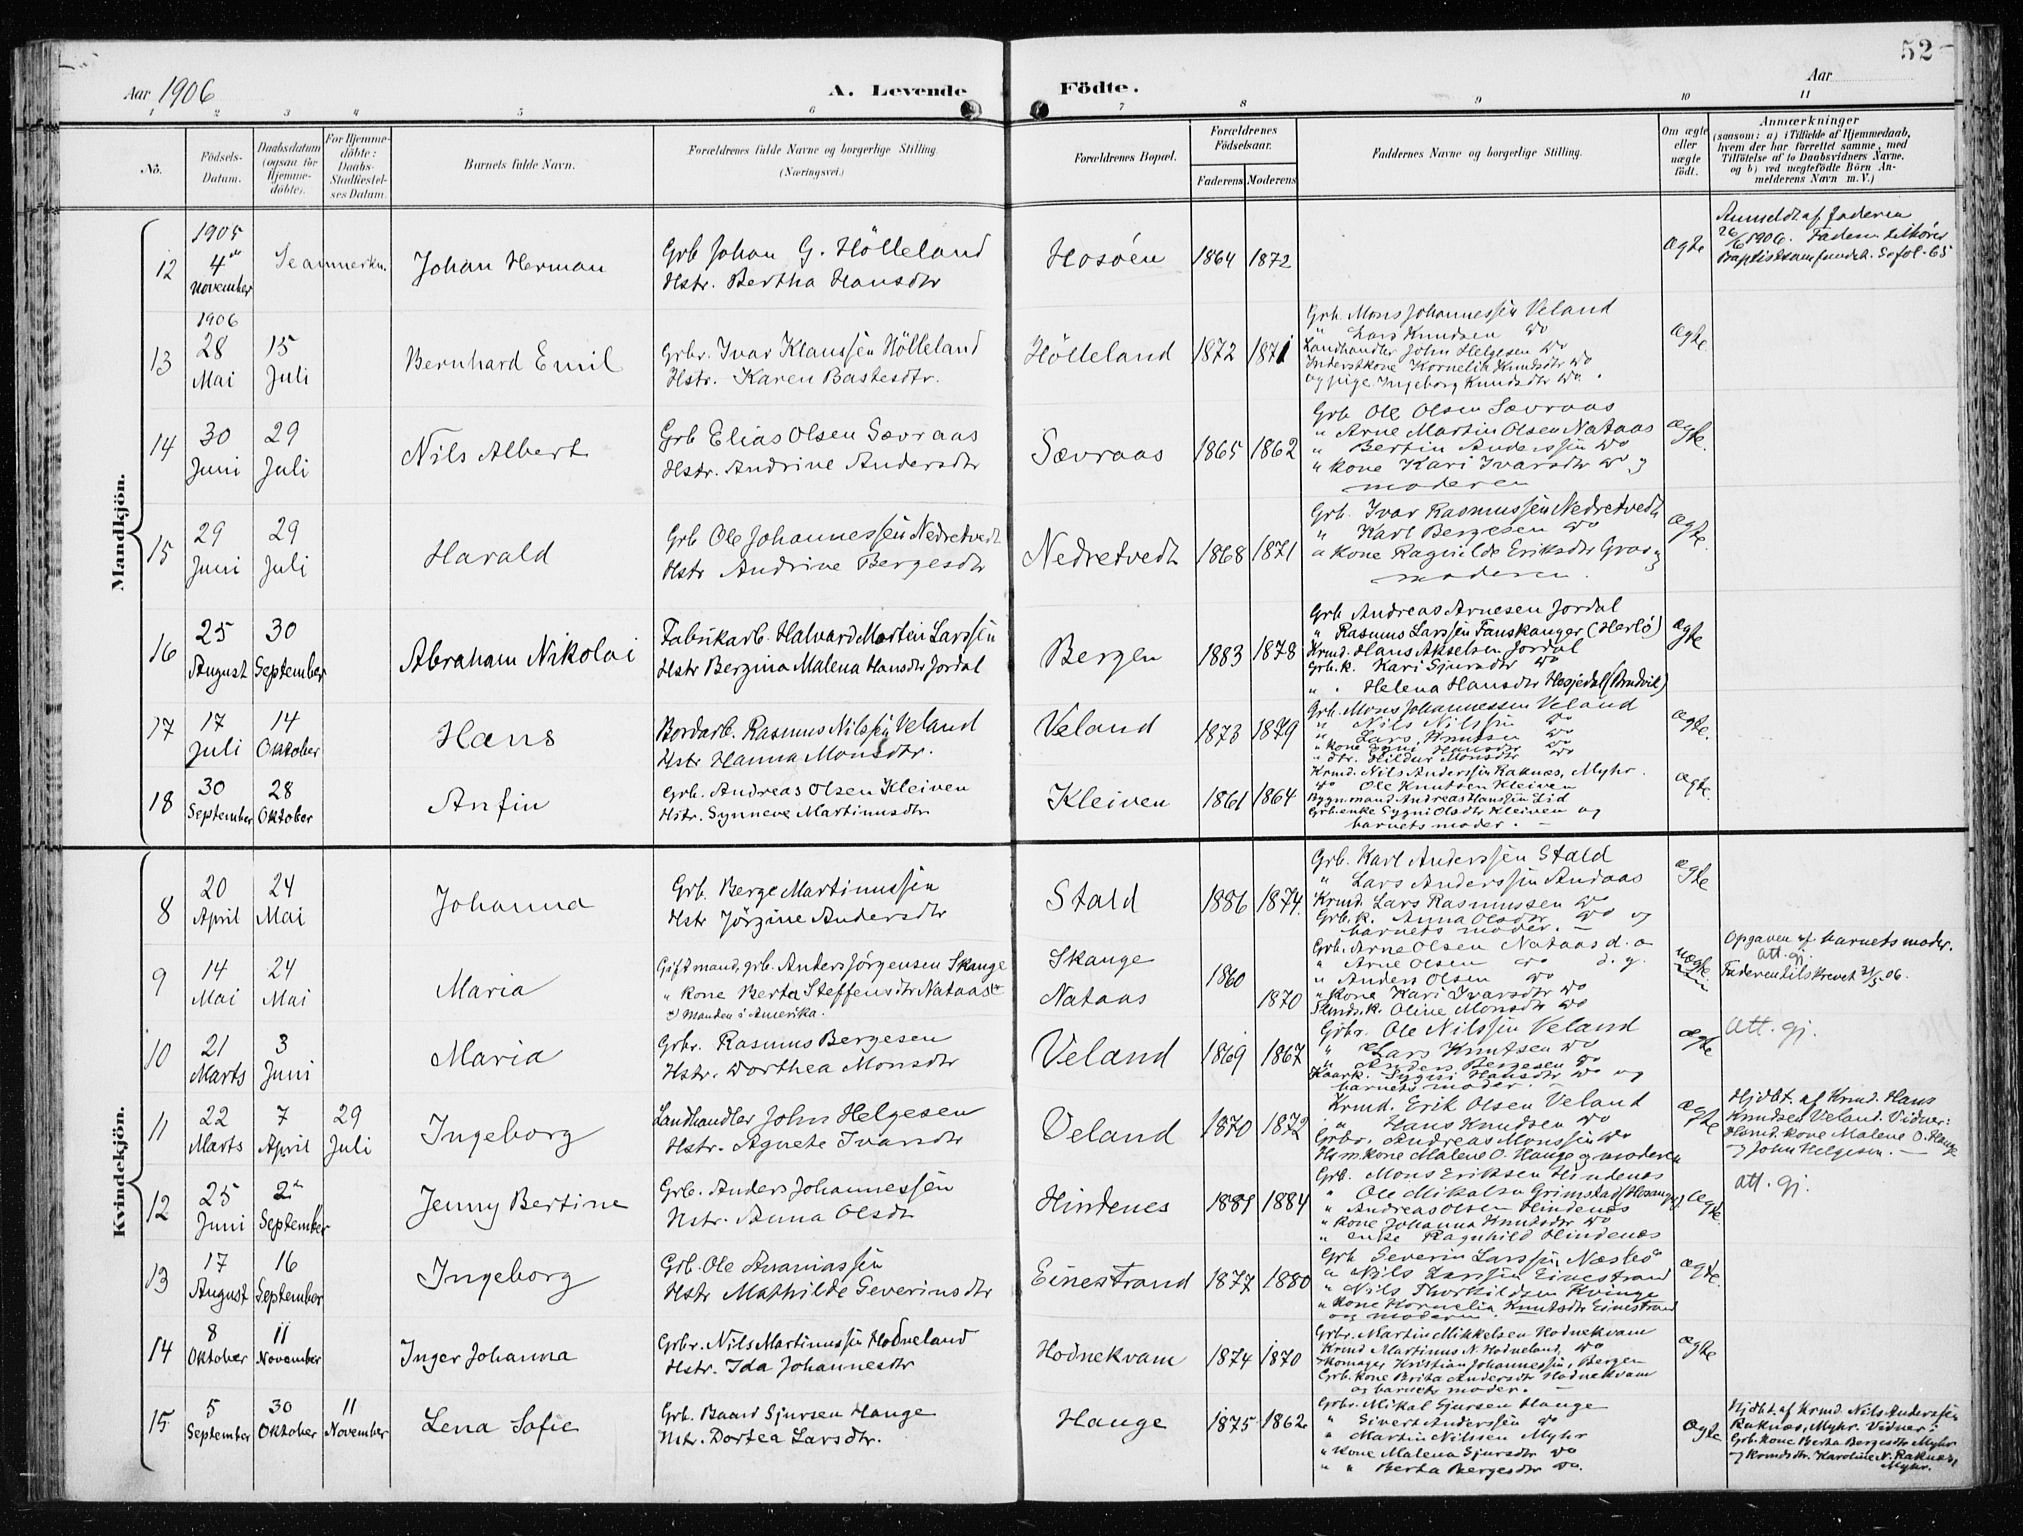 52
Aar 1906
A. Levende Födte.
Aar
1 2 3 4 5 6 7 8 9 10 11
No.
Födsels-Datum.
Daabsdatum (ogsaa for Hjemme-döbte).
For Hjemme-döbte: Daabs-Stadfæstelses Datum.
Barnets fulde Navn.
Forældrenes fulde Navne og borgerlige Stilling (Næringsvei.)
Forældrenes Bopæl.
Forældrenes Födselsaar.
Faderens Moderens
Faddernes Navne og borgerlige Stilling.
Om ægte eller uægte födt.
Anmærkninger
(saasom: a) i Tilfælde af Hjemmedaab,
hvem der har forrettet samme, med
Tilföielse af to Daabsvidners Navne,
og b) ved uægtefödte Börn An-
melderens Navn m. V.)
Mandkjön.
12
1905
4de
November
Se anmerkn.
Johan Herman
Grb Johan G. Hölleland
Hstr. Bertha Hansdtr
Hosöen
1864 1872
ægte
Anmeldt af Faderen
26/6 1906. Faderen tilhører
Baptistsamfundet. Se fol. 65
13
1906
28 Mai
15 Juli
Bernhard Emil
Grbr. Ivar Klaussen Hölleland
Hstr. Karen Bastesdtr.
Hölleland
1872 1871
Grb. Mons Johannessen Veland
" Lars Knudsen do
Landhandler John Helgesen do
Inderstkone Kornelia Knudsdtr do
og pige Ingeborg Knudsdtr do.
ægte
14
30 Juni
29 Juli
Nils Albert
Grb Elias Olsen Sævraas
Hstr. Andrine Andersdtr
Sævraas
1865 1862
Grb Ole Olsen Sævraas
" Arne Martin Olsen Nataas
" Bertin Anderssen do
" kone Kari Ivarsdtr do og
moderen
ægte.
15
29 Juni
29 Juli
Harald
Grb Ole Johannessen Nedretvedt
Hstr Andrine Bergesdtr
Nedretvedt
1868 1871
Grb. Ivar Rasmussen Nedretvedt
" Karl Bergesen do
" kone Ragnilde Eriksdtr Graa og
moderen.
ægte.
16
25 August
30 September
Abraham Nikolai
Fabrikarb. Halvard Martin Larssen
Hstr Bergina Malena Hansdtr Jordal
Bergen
1883 1878
Grb Andreas Arnesen Jordal
" Rasmus Larssen Fanskanger (Herlö)
Krmd. Hans Akselsen Jordal
Grb.k. Kari Sjursdtr do
" " Helena Hansdtr Hesjedal (Bruvik)
ægte
17
17 Juli
14 Oktober
Hans
Bordarb. Rasmus Nilssen Veland
Hstr Hanna Monsdtr.
Veland
1873 1879
Grb. Mons Johannessen Veland
" Nils Nilssen do
" Lars Knutsen do
" kone Hansdtr do
" dtr. Hildur Monsdtr do
ægte.
18
30 September
28 Oktober
Anfin
Grb. Andreas Olsen Kleiven
Hstr. Synneve Martinusdtr
Kleiven
1861 1864
Krmd. Nils Anderssen Raknes, Myhr.
do Ole Knutsen Kleiven
Bygn.mand Andreas Hanssen Lid
Grb.enke Sygni Olsdtr Kleiven og
barnets moder. —
ægte.
Kvindekjön.
8
20 April
24 Mai
Johanna
Grb. Berge Martinussen
Hstr Jörgine Andersdtr
Stald
1886 1874.
Grb. Karl Anderssen Stald
" Lars Anderssen Andaas
Krmd. Lars Rasmussen do
Grb.k. Anna Olsdtr do og
barnets moder. —
ægte
9
14 Mai
24 Mai
Maria
Gift mand, grb. Anders Jörgensen Skauge
" kone Berta Steffensdtr Nataas x)
x) Manden i Amerika.
Skauge
Nataas
1860
1870
Grb. Arne Olsen Nataas d. æ
" Arne Olsen do d. y.
" Anders Olsen do
" kone Kari Ivarsdtr do
Slmdr.k. Oline Monsdtr do
uægte
Opgaven af barnets moder.
Att. gj.
Faderen tilskrevet 21/5 06.
10
21 Marts
3 Juni
Maria
Grbr. Rasmus Bergesen
Hstr. Dorthea Monsdtr
Veland
1869 1867
Grbr. Ole Nilssen Veland
" Lars Knutsen do
" Anders Bergesen do
Kaark. Sygni Hansdtr do og
barnets moder. —
ægte
Att. gj.
11
22 Marts
7 April
29 Juli
Ingeborg
Landhandler John Helgesen
Hstr. Agnete Ivarsdtr
Veland
1870 1872
Krmd. Erik Olsen Veland
" Hans Knudsen do
Grbr. Andreas Monssen do
Hsm.kone Malene O. Hauge og moderen
ægte
Hjdbt. af Krmd. Hans
Knudsen Veland. Vidner:
Husmd. kone Malene O. Hauge
og John Helgesen. —
12
25 Juni
2den September
Jenny Bertine
Grb. Anders Johannessen
Hstr. Anna Olsdt
Hindenes
1881 1884
Grb. Mons Eriksen Hindenes
" Ole Mikalsen Grimstad (Hosanger)
" Andreas Olsen Hindenes
" kone Johanna Knutsdtr do
" enke Ragnhild Hindenes
ægte.
Att. gj.
13
17 August
16 September
Ingeborg
Grb. Ole Ananiassen
Hstr Mathilde Severinsdtr
Einestrand
1877 1880
Grb Severin Larssen Næsbö
" Nils Larssen Einestrand
" Nils Thorkildsen Kvinge
" kone Kornelia Knutsdtr Einestrand
og moderen.
ægte.
14
8 Oktober
11 November
Inger Johanna
Grbr. Nils Martinussen Hodneland
Hstr. Ida Johannesdtr
Hodnekvam
1874 1870
Grbr. Martin Mikkelsen Hodnekvam
Krmd Martinus N. Hodneland do
Skomager Kristian Johannessen, Bergen
Grb. kone Brita Andersdtr Hodnekvam
og barnets moder. —
ægte
15
5 September
30 Oktober
11 November
Lena Sofie
Grb. Baard Sjursen Hauge
Hstr. Dortea Larsdtr.
Hauge
1875 1862
Grbr. Mikal Sjursen Hauge
" Sivert Anderssen do
" Martin Nilssen Myhr
" kone Malena Sjursdtr do
" " Berta Bergesdtr do.
ægte
Hjdbt af Krmd. Nils Anderssen
Raknes, Myhr. Vidner:
Grb. kone Berta Bergesdtr Myhr
og Krmdsdtr. Karoline N. Raknes,
Myhr.